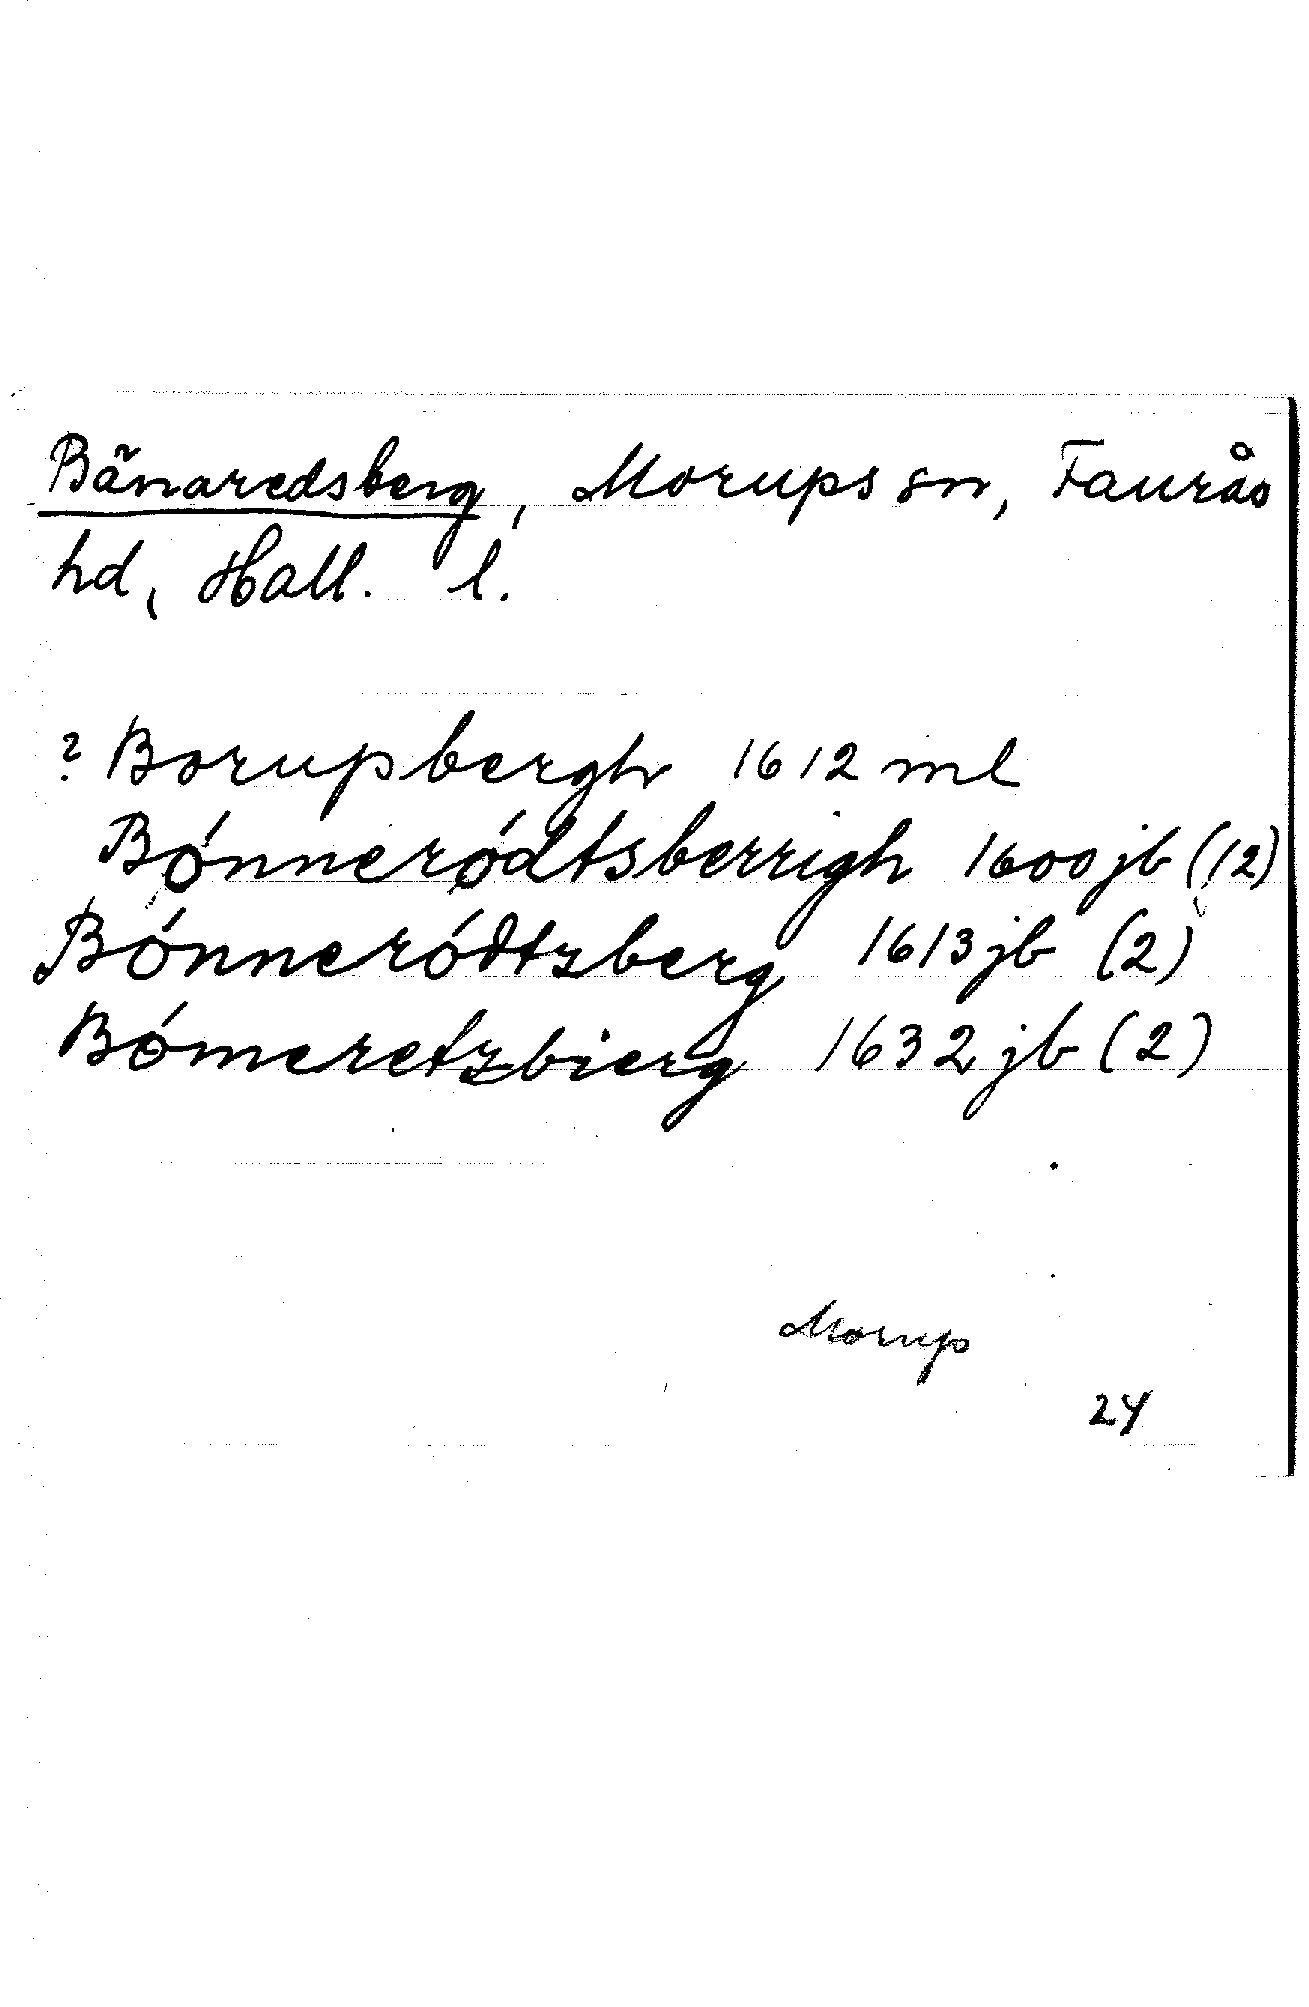 Bänaredsberg, Morups sn, Faurås
hd, Hall. l.
? Borupbergh 1612 ml
Bónneródtsberrigh 1600 jb (12)
Bónneródtzberg 1613 jb (2)
Bómeretzbierg 1632 jb (2)
Morup
24